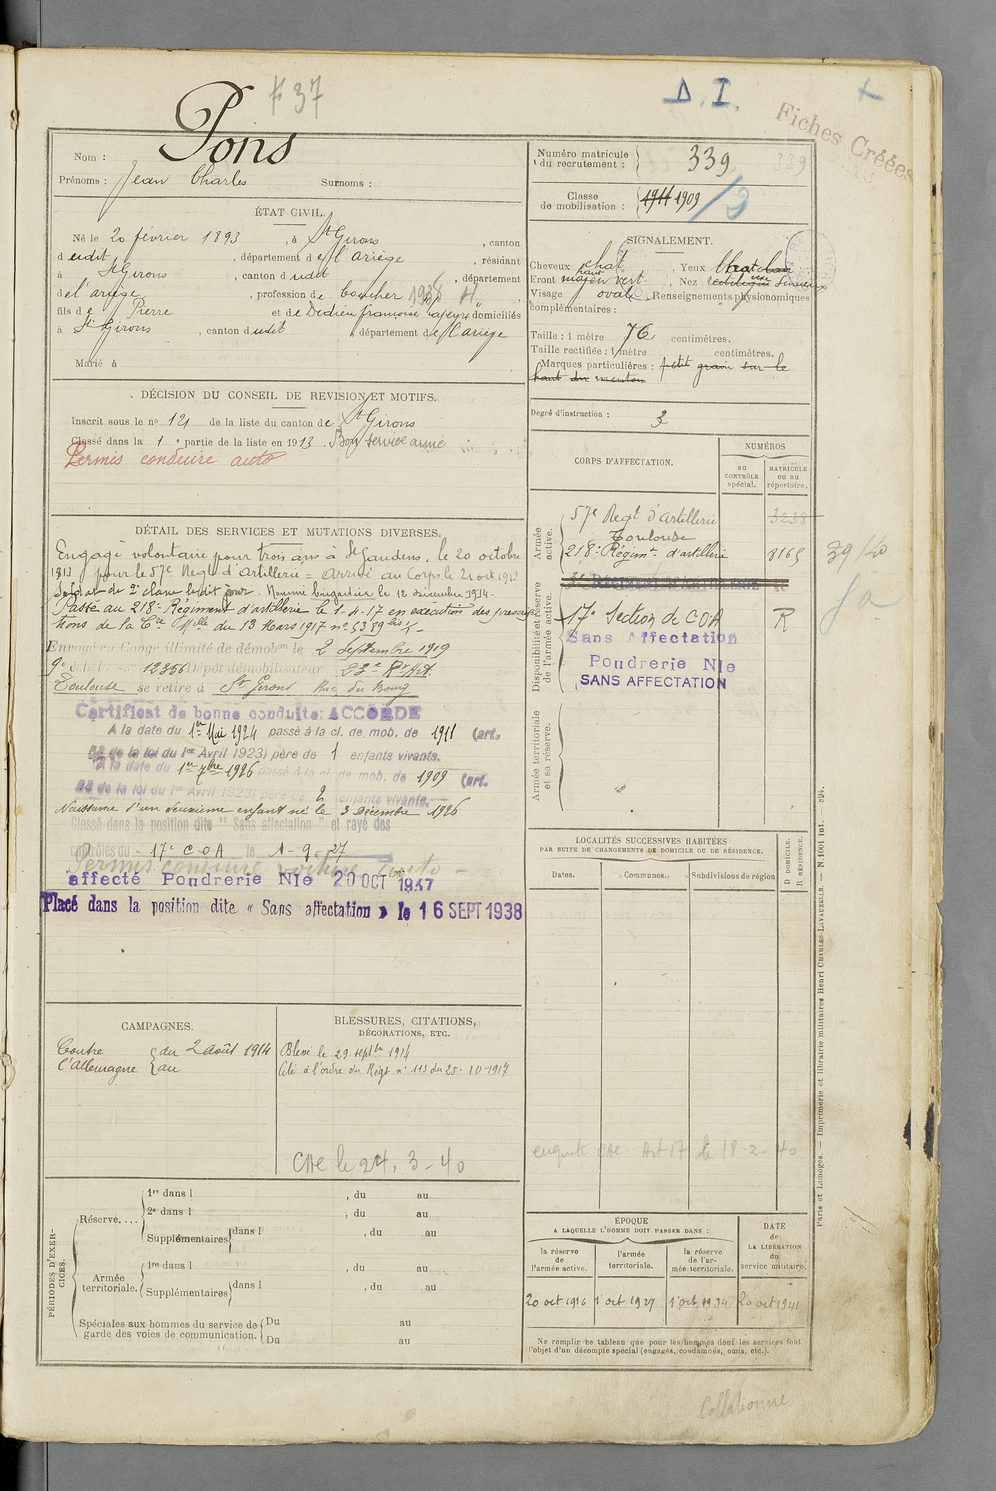 F 37
D. I.
Fiches Créées
Nom : Pons
Prénoms : Jean Charles Surnoms :
ÉTAT CIVIL.
Né le 20 février 1893, à St Girons, canton
dudit, département de l'ariège, résidant
à St Girons, canton dudit, département
de l'ariège, profession de boucher
fils de Pierre et de Dedieu françoise domiciliés
à St Girons, canton dudit, département de l'ariège
Marié à
DÉCISION DU CONSEIL DE REVISION ET MOTIFS.
Inscrit sous le no 121 de la liste du canton de St Girons
Classé dans la 1e partie de la liste en 1913. Bon service armé
Permis conduire auto
DÉTAIL DES SERVICES ET MUTATIONS DIVERSES.
Engagé volontaire pour trois ans à St Gaudens, le 20 octobre
1913 pour le 57e Regt d'Artillerie = Arrivé au Corps le 21 oct 1913
Soldat de 2e classe ledit jour. Nommé brigadier le 12 décembre 1914.
Passé au 218e Régiment d'artillerie le 1-4-17 en exécution des prescrip-
tions de la Cre Melle du 13 Mars 1917 no 5389 bis
Envoyé en Congé illimité de démobon le 2 septembre 1919
9e échelon no 12356 Dépôt démobilisateur 23e R. Art.
Toulouse se retire à St Girons Rue du Bourg
Certificat de bonne conduite: ACCORDÉ
A la date du 1er Mai 1924 passé à la cl. de mob. de 1911 (art.
de la loi du 1er Avril 1923) père de 1 enfants vivants.
A la date du 1er 7bre 1926 passé à la cl. de mob. de 1909 (art.
de la loi du 1er Avril 1923) père de 2 enfants vivants.
Naissance d'un deuxième enfant né le 3 décembre 1926
Classé dans la position dite "Sans affectation" et rayé des
contrôles du 17e COA le 1-9-27
Permis conduire
affecté Poudrerie Nle 20 OCT 1937
Placé dans la position dite « Sans affectation » le 16 SEPT 1938
CAMPAGNES.
Contre l'Allemagne { du 2 août 1914
au
BLESSURES, CITATIONS,
DÉCORATIONS, ETC.
Blessé le 29 septbre 1914
Cité à l'ordre du Régt no 113 du 25-10-1917
CAe le 24. 3-40
PÉRIODES D'EXERCICES.
Réserve....
1re dans l , du au
2e dans l , du au
Supplémentaires dans l , du au
Armée territoriale.
1re dans l , du au
Supplémentaires dans l , du au
Spéciales aux hommes du service de garde des voies de communication. Du au
Du au
Numéro matricule du recrutement : 339
Classe de mobilisation : 1911 1909
SIGNALEMENT.
Cheveux chat, Yeux
Front moyen haut vert., Nez rectiligne sinueux
Visage ovale Renseignements physionomiques
complémentaires :
Taille : 1 mètre 76 centimètres.
Taille rectifiée : 1 mètre centimètres.
Marques particulières : petit grain sur le
haut du menton
Degré d'instruction : 3
CORPS D'AFFECTATION.
NUMÉROS
au CONTRÔLE spécial.
MATRICULE ou au répertoire.
Armée active.
57e Regt d'artillerie 3238
Toulouse
218e Régimt d'artillerie 8165
39/40
Disponibilité et réserve de l'armée active.
17e Section de COA R
Sans Affectation
Poudrerie Nle
SANS AFFECTATION
Armée territoriale et sa réserve.
LOCALITÉS SUCCESSIVES HABITÉES
PAR SUITE DE CHANGEMENTS DE DOMICILE OU DE RÉSIDENCE.
Dates. Communes. Subdivisions de région
D DOMICILE.
R RÉSIDENCE.
enquête CAe Art 17 le 18-2-40
ÉPOQUE
A LAQUELLE L'HOMME DOIT PASSER DANS :
la réserve de l'armée active.
l'armée territoriale.
la réserve de l'armée territoriale.
DATE de LA LIBÉRATION du service militaire.
20 oct 1916 1 oct 1927 1 oct 1934 20 oct 1941
Ne remplir ce tableau que pour les hommes dont les services font
l'objet d'un décompte spécial (engagés, condamnés, omis, etc.).
Paris et Limoges. — Imprimerie et librairie militaires Henri CHARLES-LAVAUZELLE.
Collationné